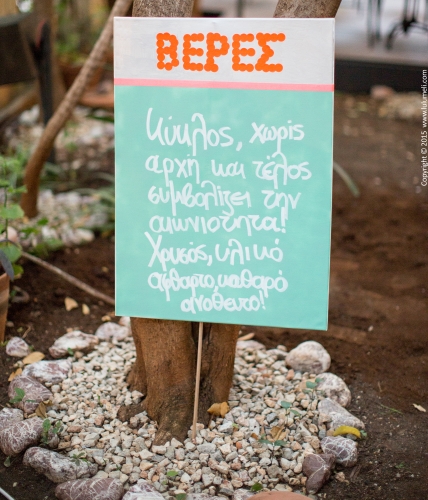 ΒΕΡΕΣ
Κύκλος, χωρίς
αρχή και τέλος
συμβολίζει την
αιωνιότητα!
Χρυσός, υλικό
άφθαρτο, καθαρό
ανόθευτο!
Copyright © 2015 www.lulumeli.com